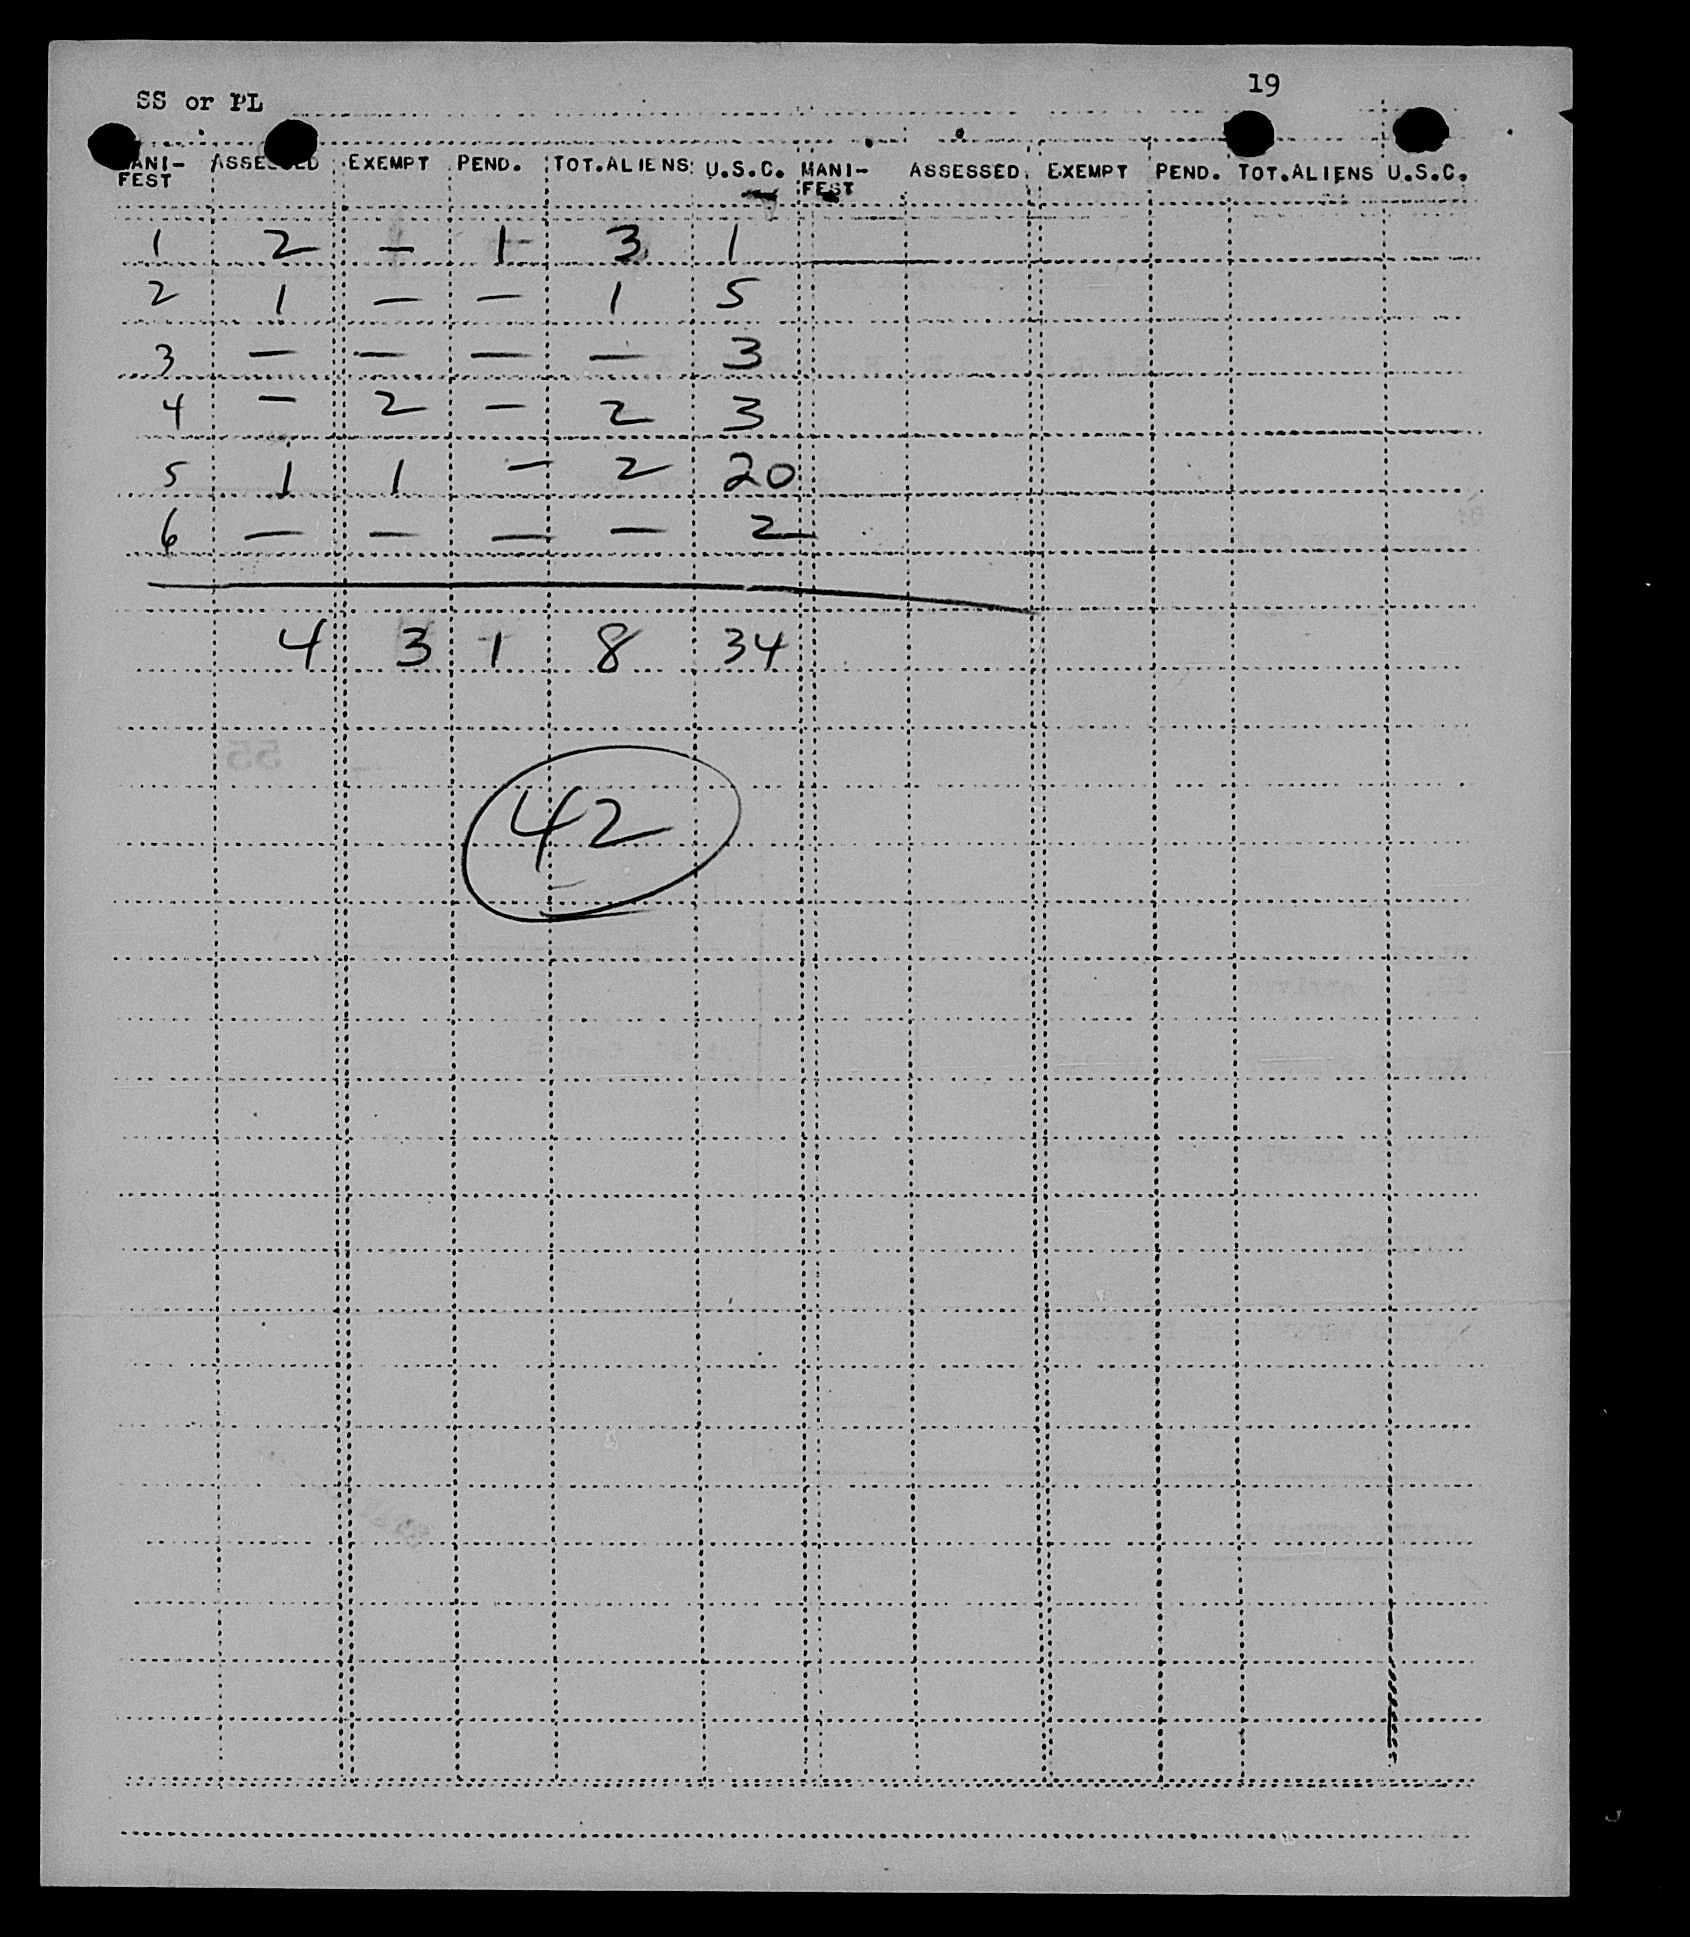 19
SS or PL
MANI- ASSESSED EXEMPT PEND. TOT.ALIENS U.S.C. MANI- ASSESSED EXEMPT PEND. TOT.ALIENS U.S.C.
FEST FEST
1 2 — 1 3 1
2 1 — — 1 5
3 — — — — 3
4 — 2 — 2 3
5 1 1 — 2 20
6 — — — — 2
4 3 1 8 34
42